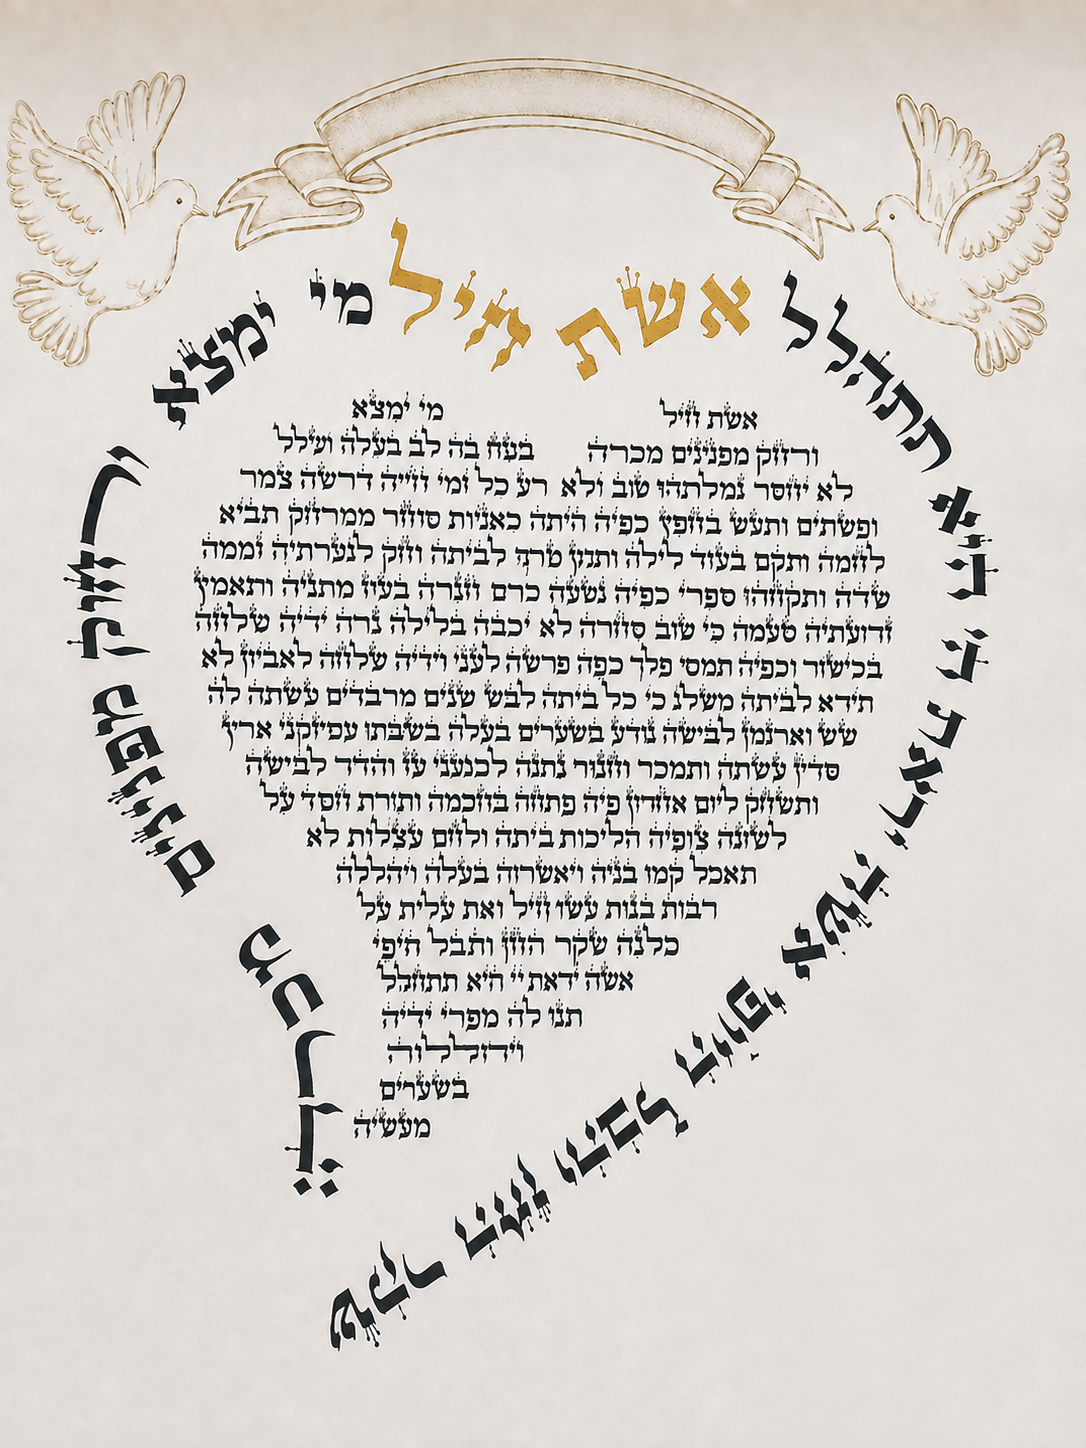 אשת חיל מי ימצא
ורחוק מפנינים
שקר החן והבל היופי אשה יראת ה' היא תתהלל
אשת חיל מי ימצא
ורחק מפנינים מכרה בטח בה לב בעלה ושלל
לא יחסר גמלתהו טוב ולא רע כל ימי חייה דרשה צמר
ופשתים ותעש בחפץ כפיה היתה כאניות סוחר ממרחק תביא
לחמה ותקם בעוד לילה ותתן טרף לביתה וחק לנערתיה זממה
שדה ותקחהו מפרי כפיה נטעה כרם חגרה בעוז מתניה ותאמץ
זרועתיה טעמה כי טוב סחרה לא יכבה בלילה נרה ידיה שלחה
בכישור וכפיה תמכו פלך כפה פרשה לעני וידיה שלחה לאביון לא
תירא לביתה משלג כי כל ביתה לבש שנים מרבדים עשתה לה
שש וארגמן לבושה נודע בשערים בעלה בשבתו עם זקני ארץ
סדין עשתה ותמכר וחגור נתנה לכנעני עז והדר לבושה
ותשחק ליום אחרון פיה פתחה בחכמה ותורת חסד על
לשונה צופיה הליכות ביתה ולחם עצלות לא
תאכל קמו בניה ויאשרוה בעלה ויהללה
רבות בנות עשו חיל ואת עלית על
כלנה שקר החן והבל היפי
אשה יראת יי היא תתהלל
תנו לה מפרי ידיה
ויהללוה
בשערים
מעשיה